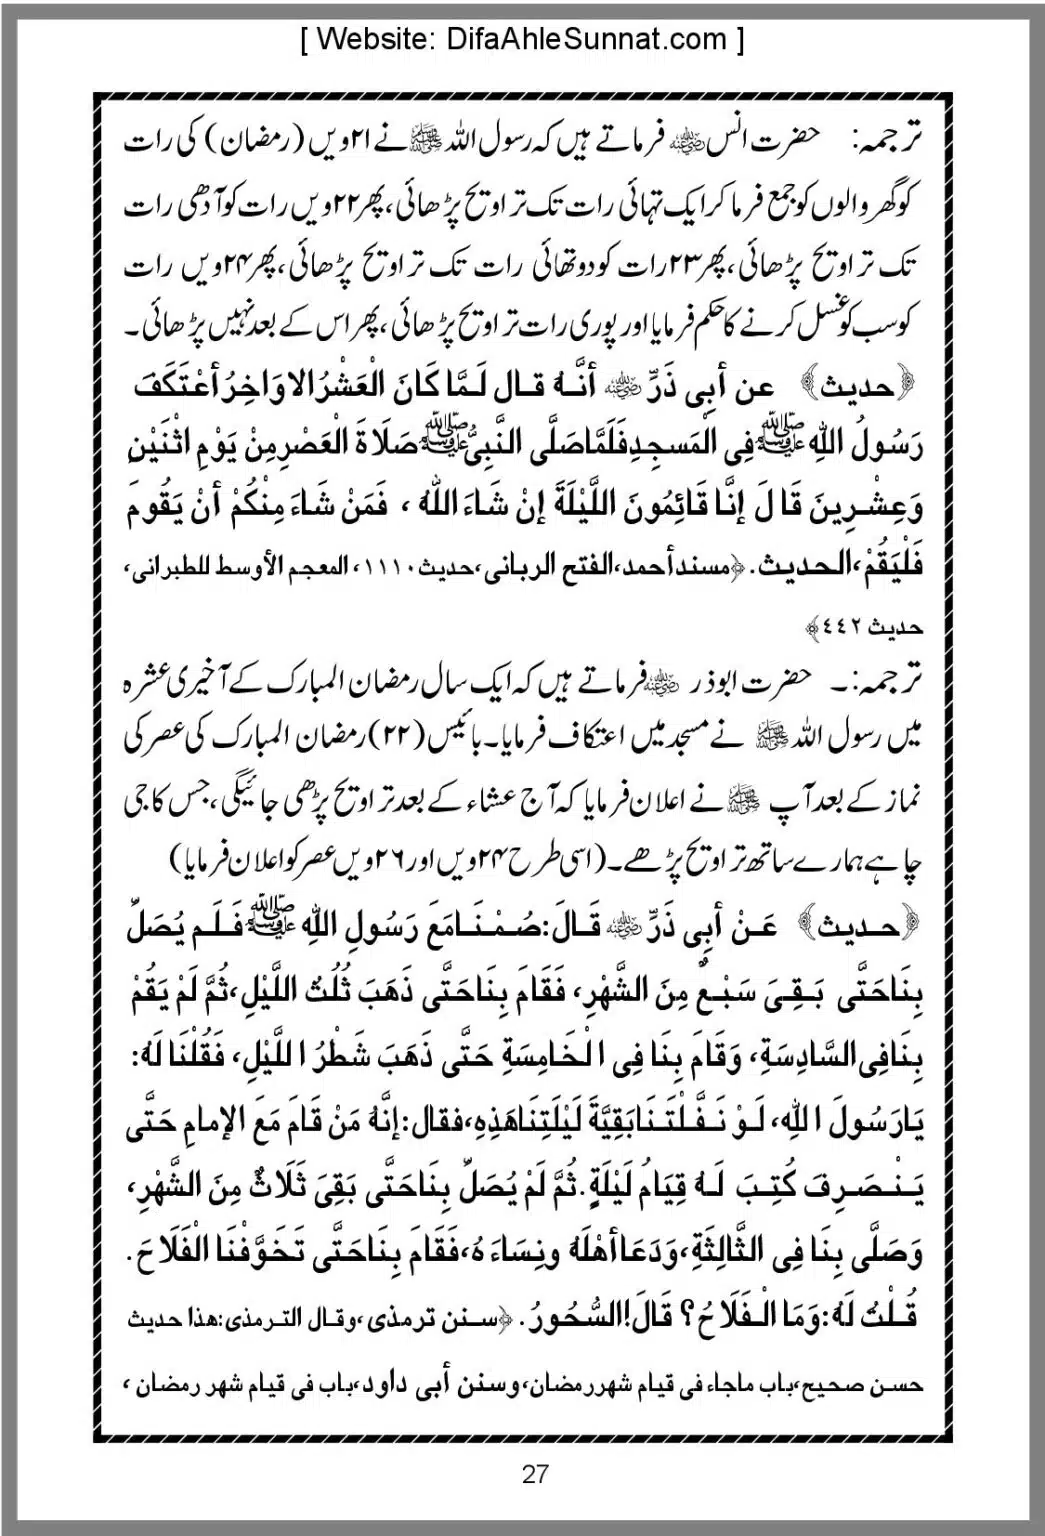 [ Website: DifaAhleSunnat.com ]
ترجمہ: حضرت انس رضی اللہ عنہ فرماتے ہیں کہ رسول اللہ ﷺ نے ۲۱ویں (رمضان) کی رات
کو گھر والوں کو جمع فرما کر ایک تہائی رات تک تراویح پڑھائی، پھر ۲۲ویں رات کو آدھی رات
تک تراویح پڑھائی، پھر ۲۳ رات کو دو تھائی رات تک تراویح پڑھائی، پھر ۲۴ویں رات
کو سب کو غسل کرنے کا حکم فرمایا اور پوری رات تراویح پڑھائی، پھر اس کے بعد نہیں پڑھائی۔
﴿حدیث﴾ عن أبِی ذَرٍّ رضی اللہ عنہ أنَّـهُ قـال لَـمَّا كَانَ الْعَشْرُ الاوَاخِرُ أعْتَكَفَ
رَسُولُ اللهِ ﷺ فِی الْمَسجِدِ فَلَمَّا صَلَّى النَّبِیُّ ﷺ صَلَاةَ الْعَصْرِ مِنْ يَوْمِ اثْنَيْنِ
وَعِشْرِينَ قَالَ إنَّا قَائِمُونَ اللَّيْلَةَ إنْ شَاءَ اللهُ ، فَمَنْ شَاءَ مِنْكُمْ أنْ يَقُومَ
فَلْيَقُمْ،الحدیث. ﴿مسند أحمد،الفتح الربانی،حدیث ۱۱۱۰، المعجم الأوسط للطبرانی،
حدیث ٤٤٢﴾
ترجمہ:۔ حضرت ابوذر رضی اللہ عنہ فرماتے ہیں کہ ایک سال رمضان المبارک کے آخیری عشرہ
میں رسول اللہ ﷺ نے مسجد میں اعتکاف فرمایا۔ بائیس (۲۲) رمضان المبارک کی عصر کی
نماز کے بعد آپ ﷺ نے اعلان فرمایا کہ آج عشاء کے بعد تراویح پڑھی جائیگی، جس کا جی
چاہے ہمارے ساتھ تراویح پڑھے۔ (اسی طرح ۲۴ویں اور ۲۶ویں عصر کو اعلان فرمایا)
﴿حدیث﴾ عَنْ أبِی ذَرٍّ رضی اللہ عنہ قَالَ:صُمْنَا مَعَ رَسُولِ اللهِ ﷺ فَلَم يُصَلِّ
بِنَا حَتَّى بَقِیَ سَبْعٌ مِنَ الشَّهْرِ، فَقَامَ بِنَا حَتَّى ذَهَبَ ثُلُثُ اللَّيْلِ،ثُمَّ لَمْ يَقُمْ
بِنَا فِی السَّادِسَةِ، وَقَامَ بِنَا فِی الْخَامِسَةِ حَتَّى ذَهَبَ شَطْرُ اللَّيْلِ، فَقُلْنَا لَهُ:
يَارَسُولَ اللهِ، لَوْ نَفَّلْتَنَا بَقِيَّةَ لَيْلَتِنَا هَذِهِ،فقال:إنَّهُ مَنْ قَامَ مَعَ الإمامِ حَتَّى
يَنْصَرِفَ كُتِبَ لَهُ قِيَامُ لَيْلَةٍ.ثُمَّ لَمْ يُصَلِّ بِنَا حَتَّى بَقِیَ ثَلَاثٌ مِنَ الشَّهْرِ،
وَصَلَّى بِنَا فِی الثَّالِثَةِ،وَدَعَا أهْلَهُ ونِسَاءَهُ،فَقَامَ بِنَا حَتَّى تَخَوَّفْنَا الْفَلَاحَ.
قُلْتُ لَهُ:وَمَا الْفَلَاحُ؟ قَالَ!السُّحُورُ. ﴿سنن ترمذی ،وقال الترمذی:هذا حدیث
حسن صحیح،باب ماجاء فی قیام شهر رمضان،وسنن أبی داود،باب فی قیام شهر رمضان ،
27